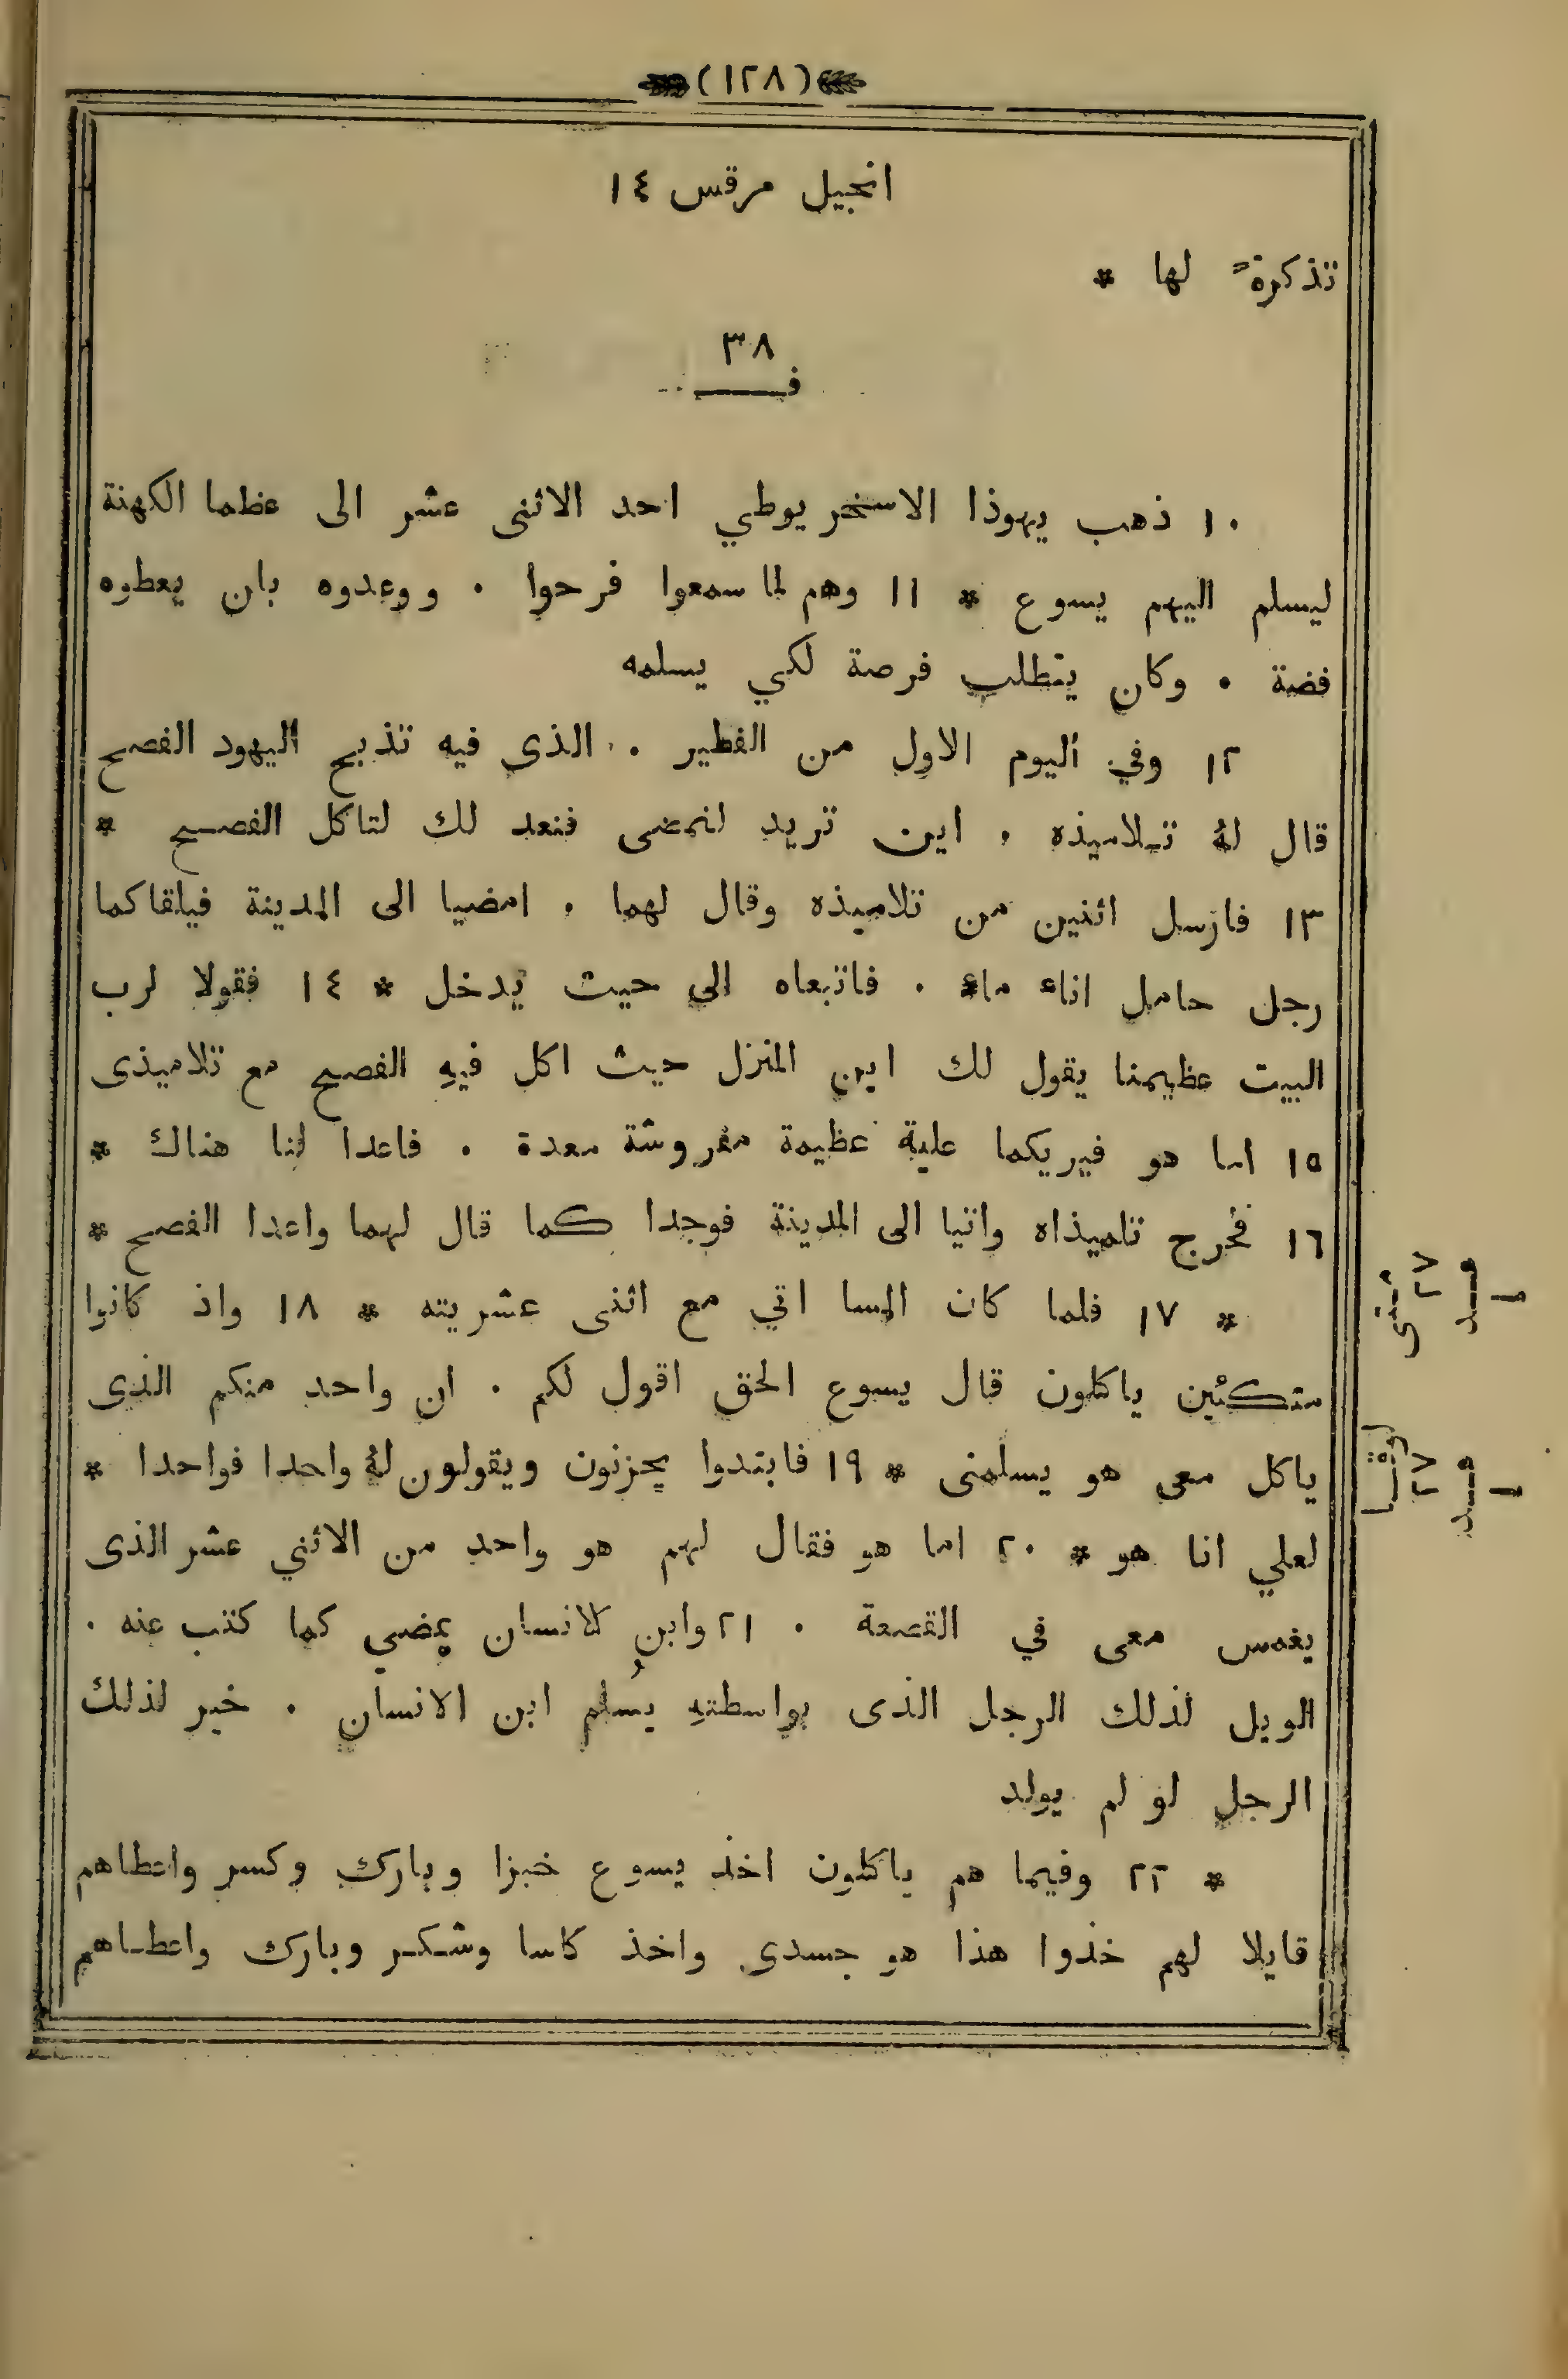 (١٢٨)
انجيل مرقس ١٤
تذكرةً لها *
٣٨
ف
١٠ ذهب يهوذا الاسخريوطي احد الاثنى عشر الى عظما الكهنة
ليسلم اليهم يسوع * ١١ وهم لما سمعوا فرحوا . ووعدوه بان يعطوه
فضة . وكان يتطلب فرصة لكي يسلمه
١٢ وفي اليوم الاول من الفطير . الذى فيه تذبح اليهود الفصح
قال لهُ تلاميذه . اين تريد لنمضى فنعد لك لتاكل الفصح *
١٣ فارسل اثنين من تلاميذه وقال لهما . امضيا الى المدينة فيلقاكما
رجل حامل اناء ماء . فاتبعاه الى حيث يدخل * ١٤ فقولا لرب
البيت عظيمنا يقول لك اين المنزل حيث اكل فيهِ الفصح مع تلاميذى
١٥ اما هو فيريكما علية عظيمة مفروشة معدة . فاعدا لنا هناك *
١٦ فخرج تلميذاه واتيا الى المدينة فوجدا كما قال لهما واعدا الفصح *
* ١٧ فلما كان المسا اتي مع اثنى عشريته * ١٨ واذ كانوا
متكئين ياكلون قال يسوع الحق اقول لكم . ان واحد منكم الذى
ياكل معى هو يسلمنى * ١٩ فابتدوا يحزنون ويقولون لهُ واحدا فواحدا *
لعلي انا هو * ٢٠ اما هو فقال لهم هو واحد من الاثني عشر الذى
يغمس معى في القصعة . ٢١ وابن الانسان يمضي كما كتب عنه .
الويل لذلك الرجل الذى بواسطتهِ يُسلم ابن الانسان . خير لذلك
الرجل لو لم يولد
* ٢٢ وفيما هم ياكلون اخذ يسوع خبزا وبارك وكسر واعطاهم
قايلا لهم خذوا هذا هو جسدى واخذ كاسا وشكر وبارك واعطاهم
متى
٢٧
لوقا
٢٧